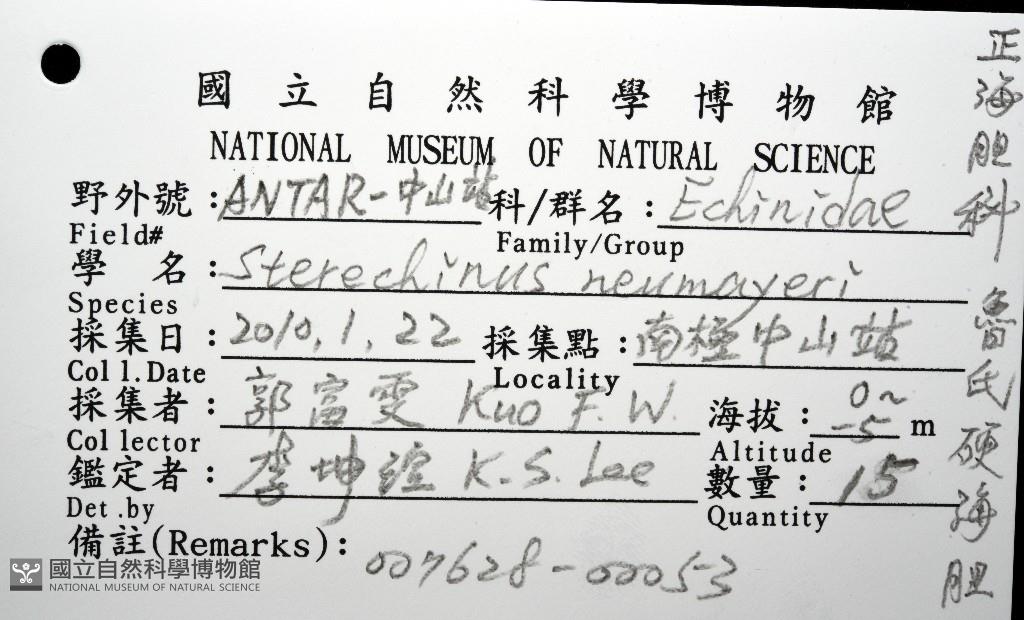 國立自然科學博物館
NATIONAL MUSEUM OF NATURAL SCIENCE
野外號:ANTAR-中山站 科/群名:Echinidae
Field# Family/Group
學 名:Sterechinus neumayeri
Species
採集日:2010.1.22 採集點:南極中山站
Coll.Date Locality
採集者:郭富雯 Kuo F.W. 海拔:0~-5 m
Collector Altitude
鑑定者:李坤瑄 K.S. Lee 數量:15
Det.by Quantity
備註(Remarks):
007628-00053
正海胆科 魯氏硬海胆
國立自然科學博物館
NATIONAL MUSEUM OF NATURAL SCIENCE